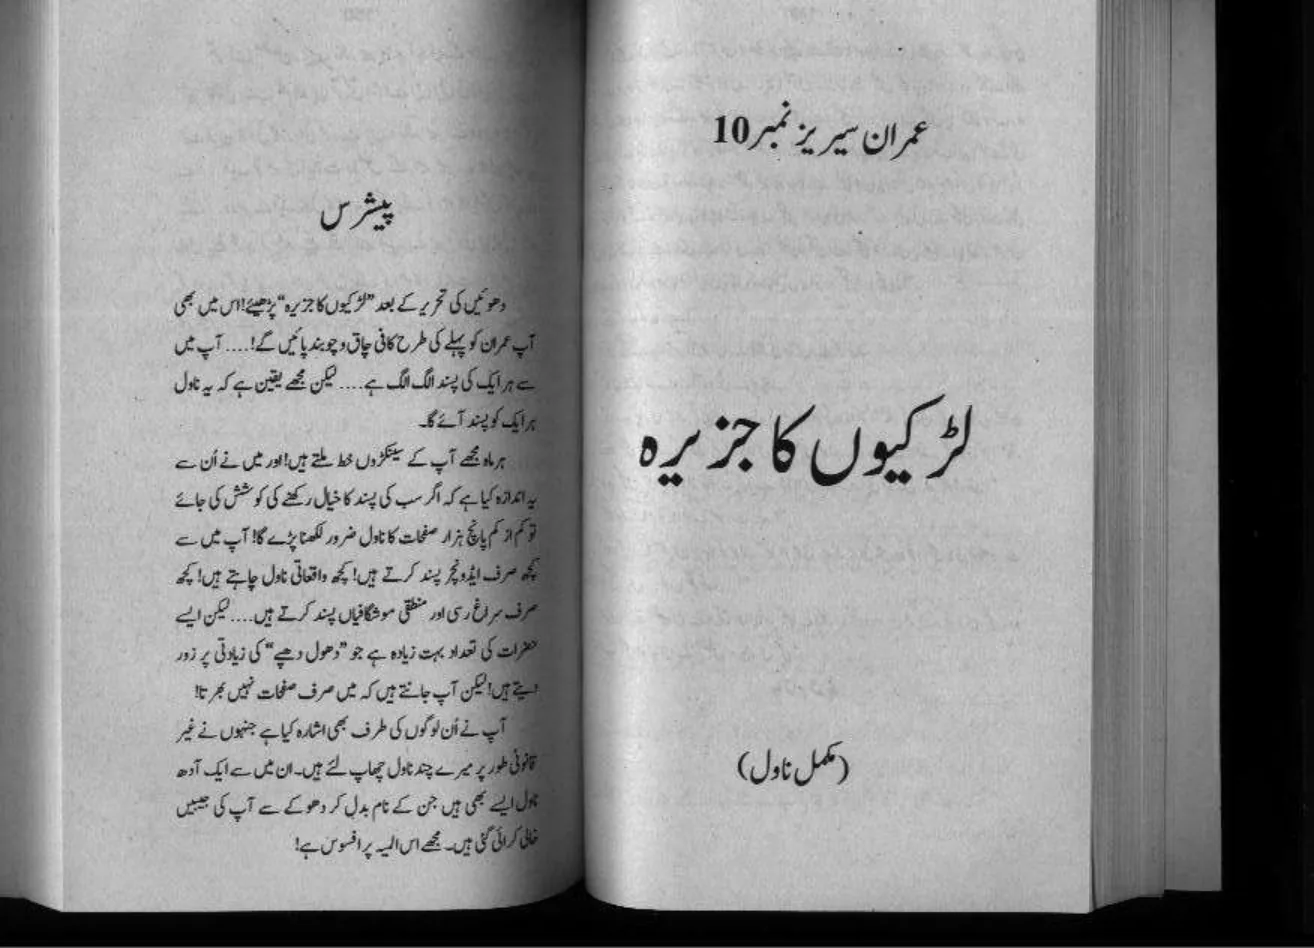 عمران سیریز نمبر 10
لڑکیوں کا جزیرہ
(مکمل ناول)
پیشرس
دھوئیں کی تحریر کے بعد ”لڑکیوں کا جزیرہ“ پڑھیئے! اس میں بھی
آپ عمران کو پہلے کی طرح کافی چاق و چوبند پائیں گے!.... آپ میں
سے ہر ایک کی پسند الگ الگ ہے.... لیکن مجھے یقین ہے کہ یہ ناول
ہر ایک کو پسند آئے گا۔
ہر ماہ مجھے آپ کے سینکڑوں خط ملتے ہیں! اور میں نے اُن سے
یہ اندازہ کیا ہے کہ اگر سب کی پسند کا خیال رکھنے کی کوشش کی جائے
تو کم از کم پانچ ہزار صفحات کا ناول ضرور لکھنا پڑے گا! آپ میں سے
کچھ صرف ایڈونچر پسند کرتے ہیں! کچھ واقعاتی ناول چاہتے ہیں! کچھ
صرف سراغ رسی اور منطقی موشگافیاں پسند کرتے ہیں.... لیکن ایسے
حضرات کی تعداد بہت زیادہ ہے جو ”دھول دھپے“ کی زیادتی پر زور
دیتے ہیں! لیکن آپ جانتے ہیں کہ میں صرف صفحات نہیں بھرتا!
آپ نے اُن لوگوں کی طرف بھی اشارہ کیا ہے جنہوں نے غیر
قانونی طور پر میرے چند ناول چھاپ لئے ہیں۔ ان میں سے ایک آدھ
ناول ایسے بھی ہیں جن کے نام بدل کر دھوکے سے آپ کی جیبیں
خالی کرائی گئی ہیں۔ مجھے اس المیہ پر افسوس ہے!